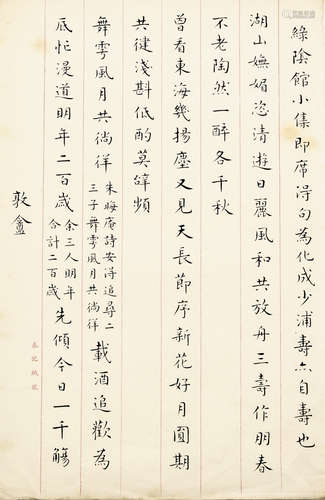 綠陰館小集即席得句為化成少浦壽亦自壽也
湖山嫵媚恣清遊日麗風和共放舟三壽作朋春
不老陶然一醉各千秋
曾看東海幾揚塵又見天長節序新花好月圓期
共健淺斟低酌莫辭頻
舞雩風月共徜徉朱晦庵詩安得追尋二三子舞雩風月共徜徉載酒追歡為
底忙漫道明年二百歲余三人明年合計二百歲先傾今日一千觴
敦盦